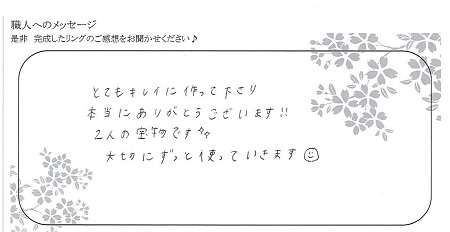 職人へのメッセージ
是非 完成したリングのご感想をお聞かせください♪
とてもキレイに作って下さり
本当にありがとうございます!!
2人の宝物です☆☆
大切にずっと使っていきます☺